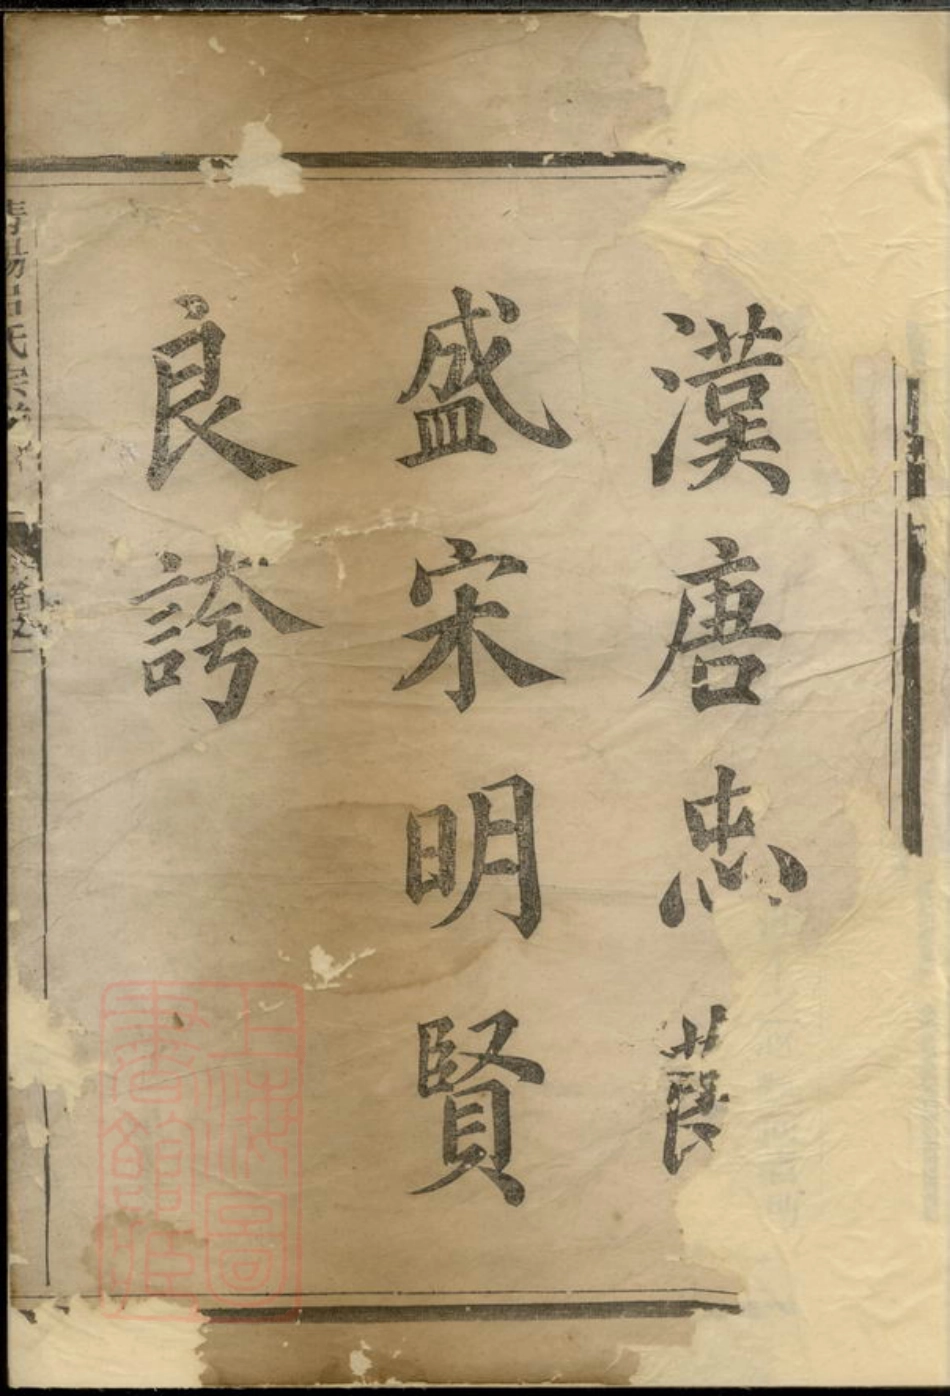 漢唐忠
盛宋明賢
良誇
氏宗
上海圖
書館藏